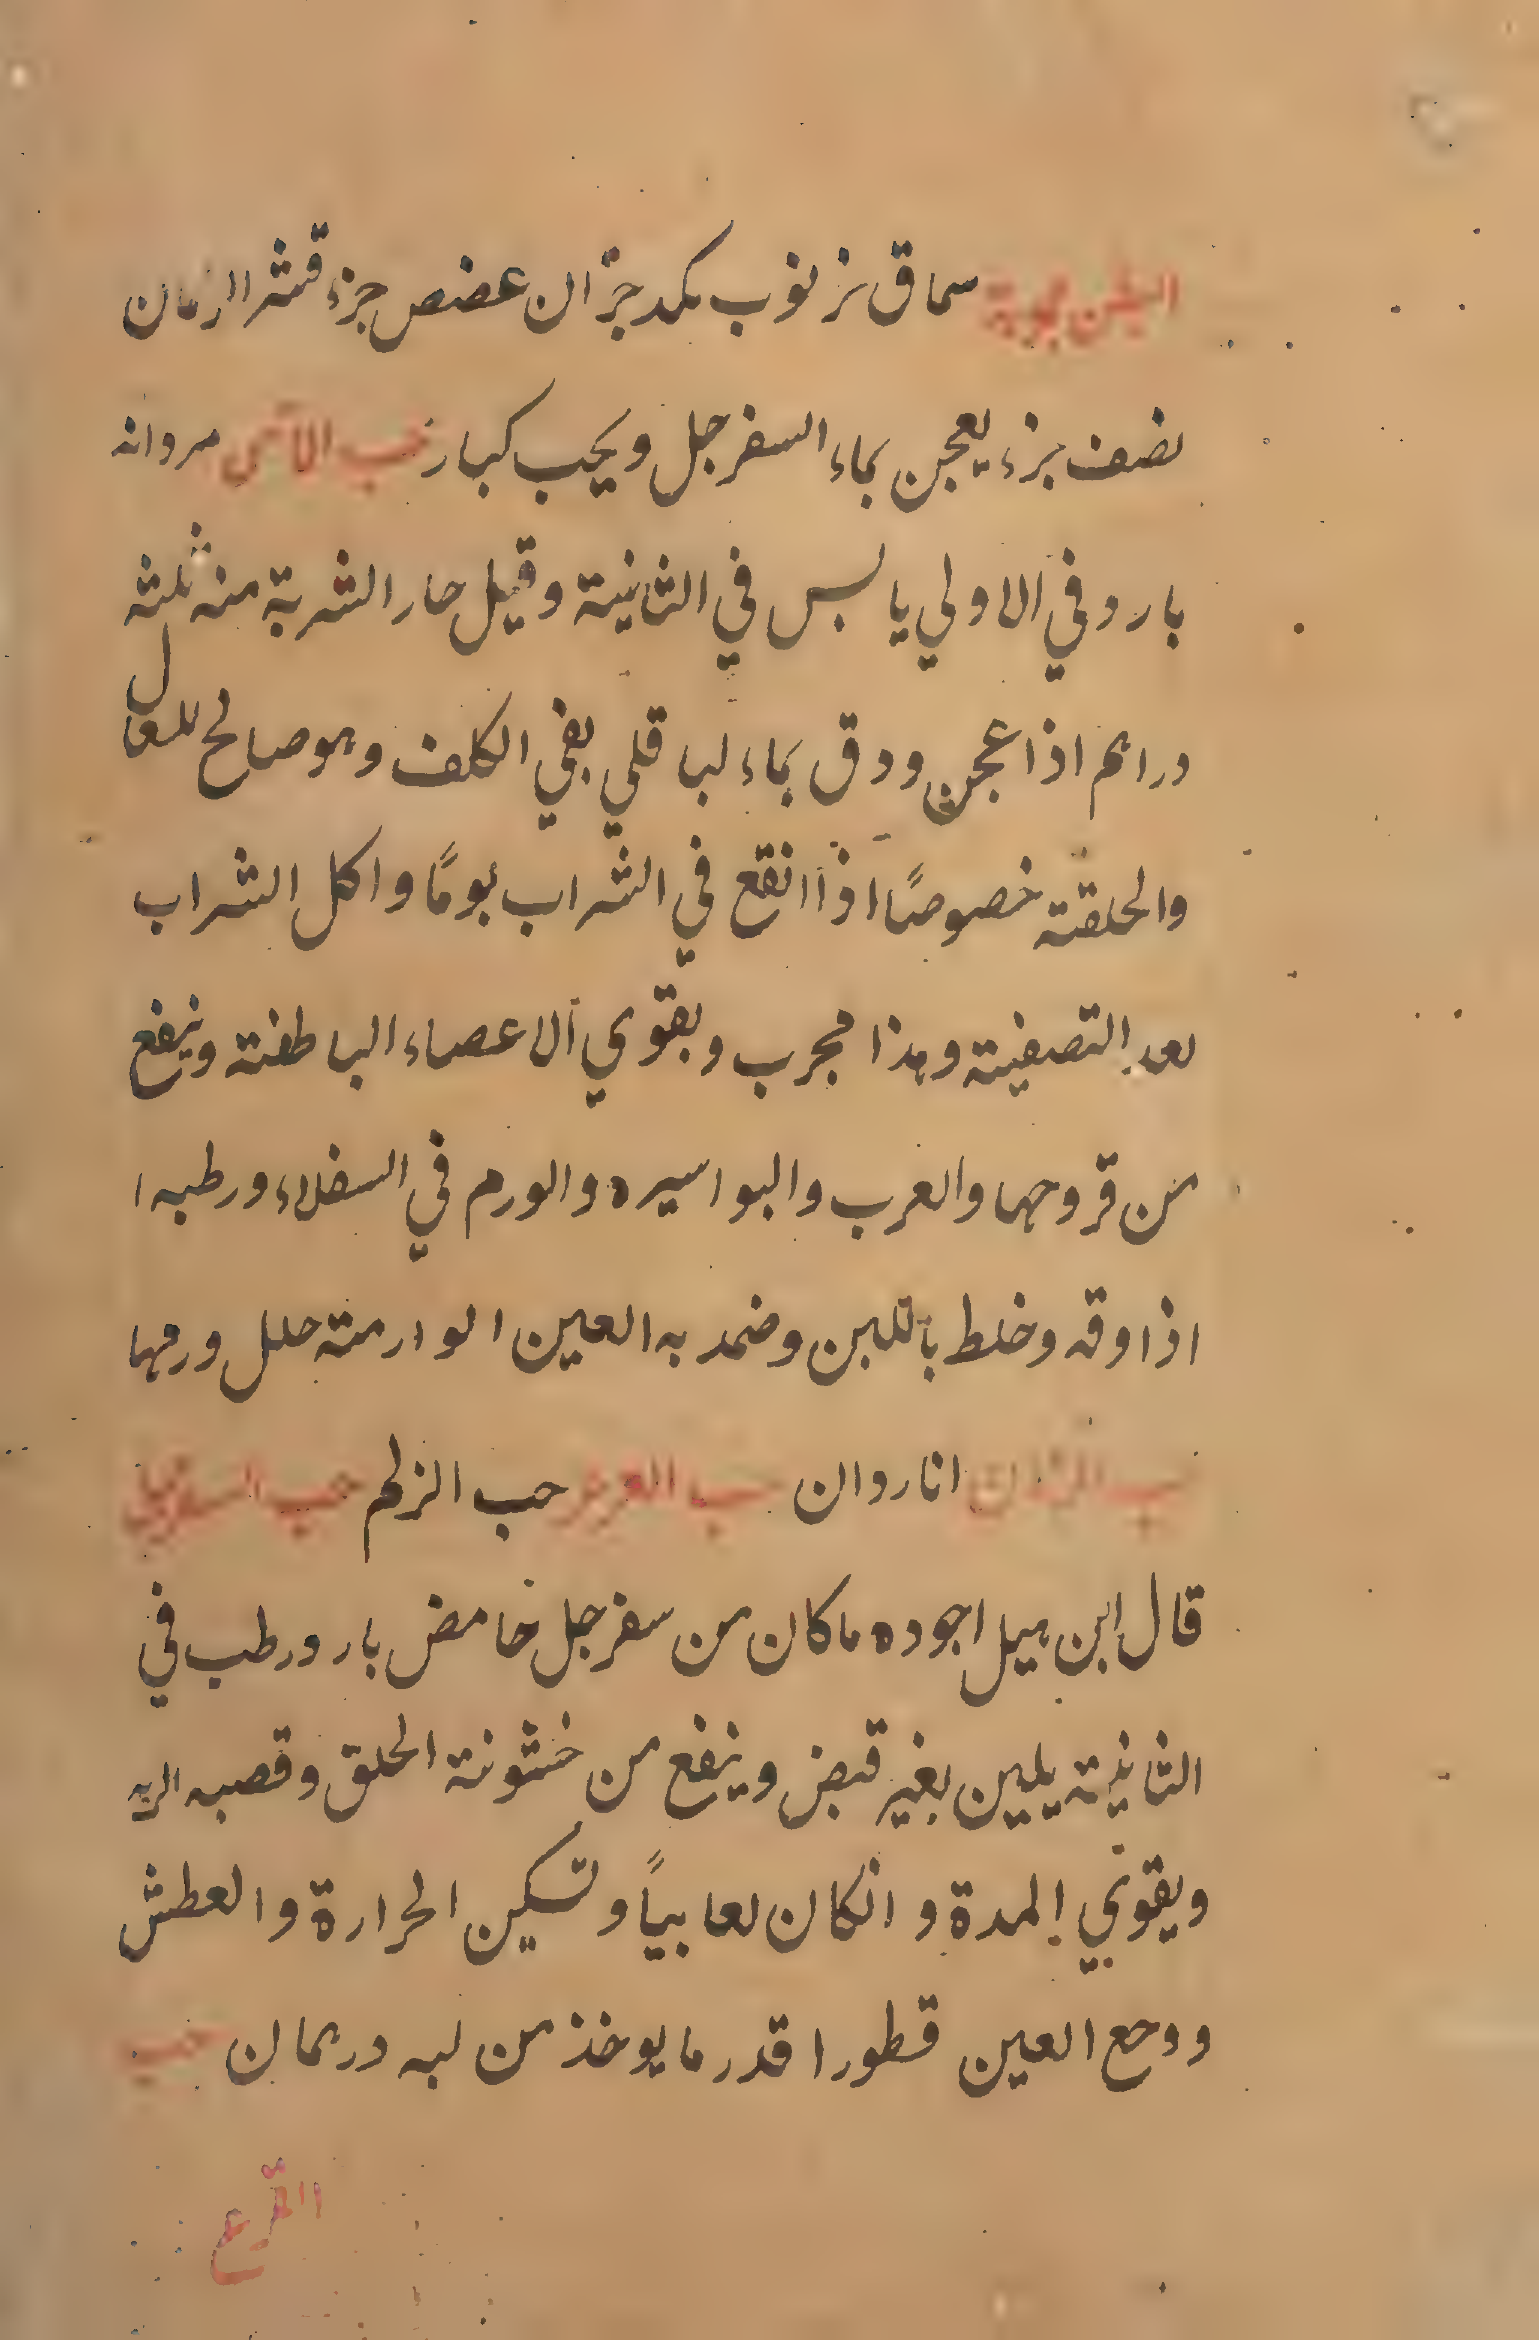 البطن مجربة سماق خرنوب مكد جزآن عفص جزء قشر الرمان
نصف جزء يعجن بماء السفرجل ويحبب كبار حب الآس مردانه
بارد في الاولي يابس في الثانية وقيل حار الشربة منه ثلثة
دراهم اذا عجن ودق بماء لباقلي بفي الكلف وهو صالح للسعال
والحلقة خصوصًا اذا انقع في الشراب يومًا واكل الشراب
بعد التصفية وهذا مجرب ويقوي الاعصاء الباطنة وينفع
من قروحها والغرب والبواسيره والورم في السفلاء ورطبه ا
اذا وقه وخلط باللبن وضمد به العين الوارمة حلل ورمها
حب الرمان اناردان حب العزيز حب الزلم حب السفرجل
قال ابن هبل اجوده ماكان من سفرجل خامض بارد رطب في
الثانية يلين بغير قبض وينفع من خشونة الحلق وقصبه الريه
ويقوي المدة و انكان لعابيًا وتسكين الحرارة والعطش
ووجع العين قطورا قدر ما يوخذ من لبه درهمان حب
القرع